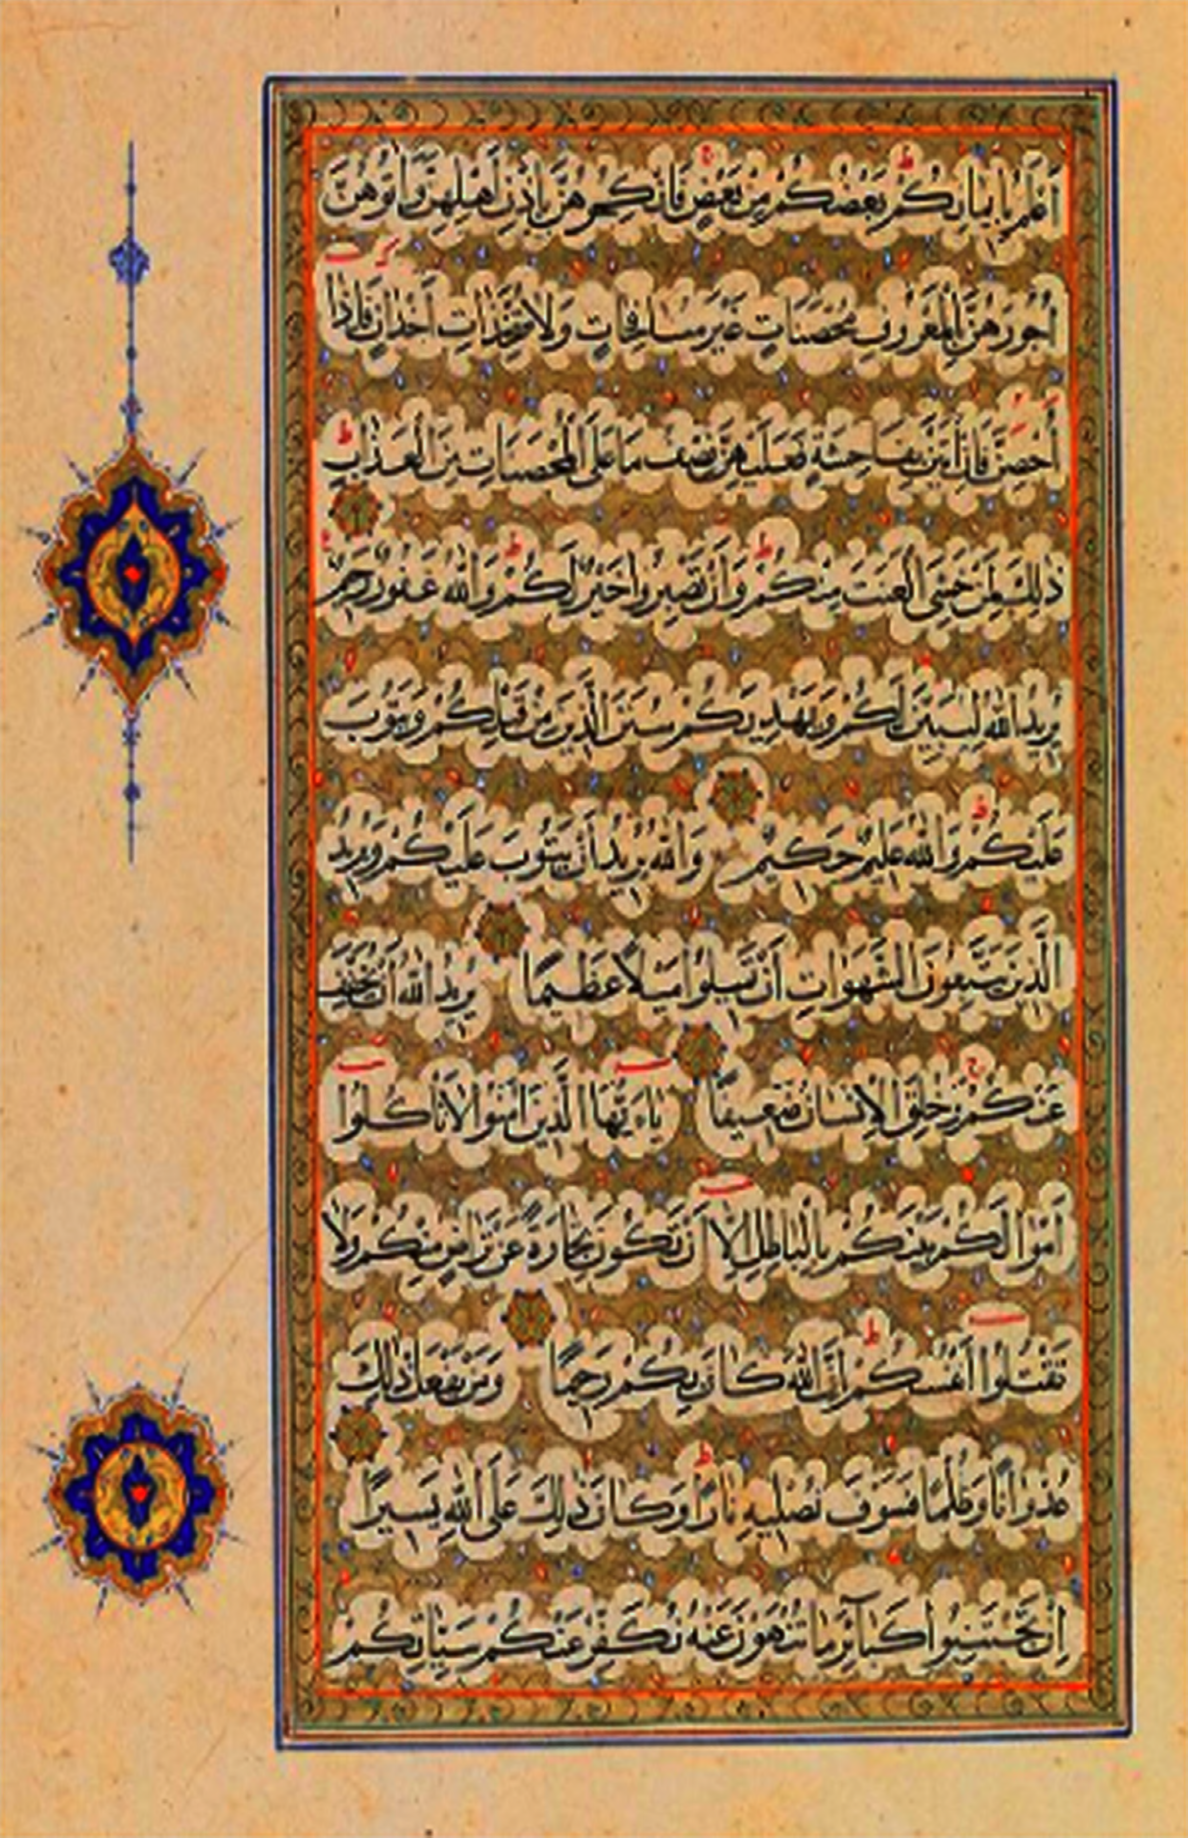 أَعْلَمُ بِإِيمَانِكُمْ بَعْضُكُمْ مِنْ بَعْضٍ فَانْكِحُوهُنَّ بِإِذْنِ أَهْلِهِنَّ وَآتُوهُنَّ
أُجُورَهُنَّ بِالْمَعْرُوفِ مُحْصَنَاتٍ غَيْرَ مُسَافِحَاتٍ وَلَا مُتَّخِذَاتِ أَخْدَانٍ فَإِذَا
أُحْصِنَّ فَإِنْ أَتَيْنَ بِفَاحِشَةٍ فَعَلَيْهِنَّ نِصْفُ مَا عَلَى الْمُحْصَنَاتِ مِنَ الْعَذَابِ
ذَلِكَ لِمَنْ خَشِيَ الْعَنَتَ مِنْكُمْ وَأَنْ تَصْبِرُوا خَيْرٌ لَكُمْ وَاللَّهُ غَفُورٌ رَحِيمٌ
يُرِيدُ اللَّهُ لِيُبَيِّنَ لَكُمْ وَيَهْدِيَكُمْ سُنَنَ الَّذِينَ مِنْ قَبْلِكُمْ وَيَتُوبَ
عَلَيْكُمْ وَاللَّهُ عَلِيمٌ حَكِيمٌ وَاللَّهُ يُرِيدُ أَنْ يَتُوبَ عَلَيْكُمْ وَيُرِيدُ
الَّذِينَ يَتَّبِعُونَ الشَّهَوَاتِ أَنْ تَمِيلُوا مَيْلًا عَظِيمًا يُرِيدُ اللَّهُ أَنْ يُخَفِّفَ
عَنْكُمْ وَخُلِقَ الْإِنْسَانُ ضَعِيفًا يَاءَيُّهَا الَّذِينَ آمَنُوا لَا تَأْكُلُوا
أَمْوَالَكُمْ بَيْنَكُمْ بِالْبَاطِلِ إِلَّا أَنْ تَكُونَ تِجَارَةً عَنْ تَرَاضٍ مِنْكُمْ وَلَا
تَقْتُلُوا أَنْفُسَكُمْ إِنَّ اللَّهَ كَانَ بِكُمْ رَحِيمًا وَمَنْ يَفْعَلْ ذَلِكَ
عُدْوَانًا وَظُلْمًا فَسَوْفَ نُصْلِيهِ نَارًا وَكَانَ ذَلِكَ عَلَى اللَّهِ يَسِيرًا
إِنْ تَجْتَنِبُوا كَبَائِرَ مَا تُنْهَوْنَ عَنْهُ نُكَفِّرْ عَنْكُمْ سَيِّئَاتِكُمْ